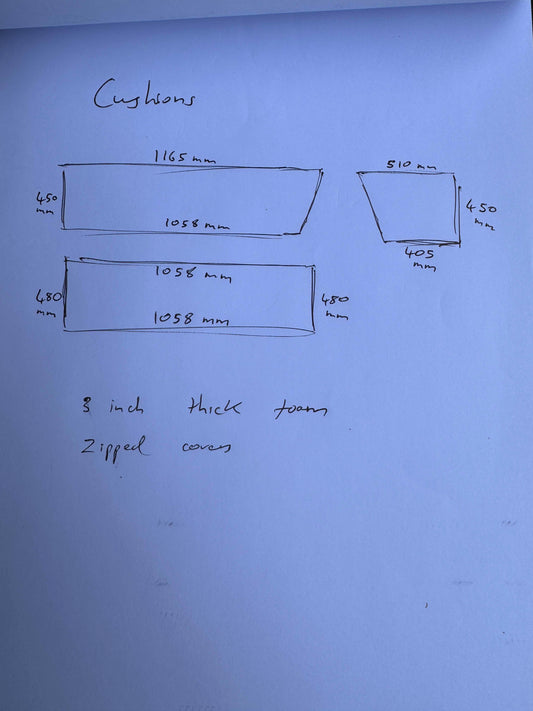 Cushions
1165 mm
510 mm
450 mm
1058 mm
450 mm
405 mm
1058 mm
480 mm
480 mm
1058 mm
3 inch thick foam
Zipped covers